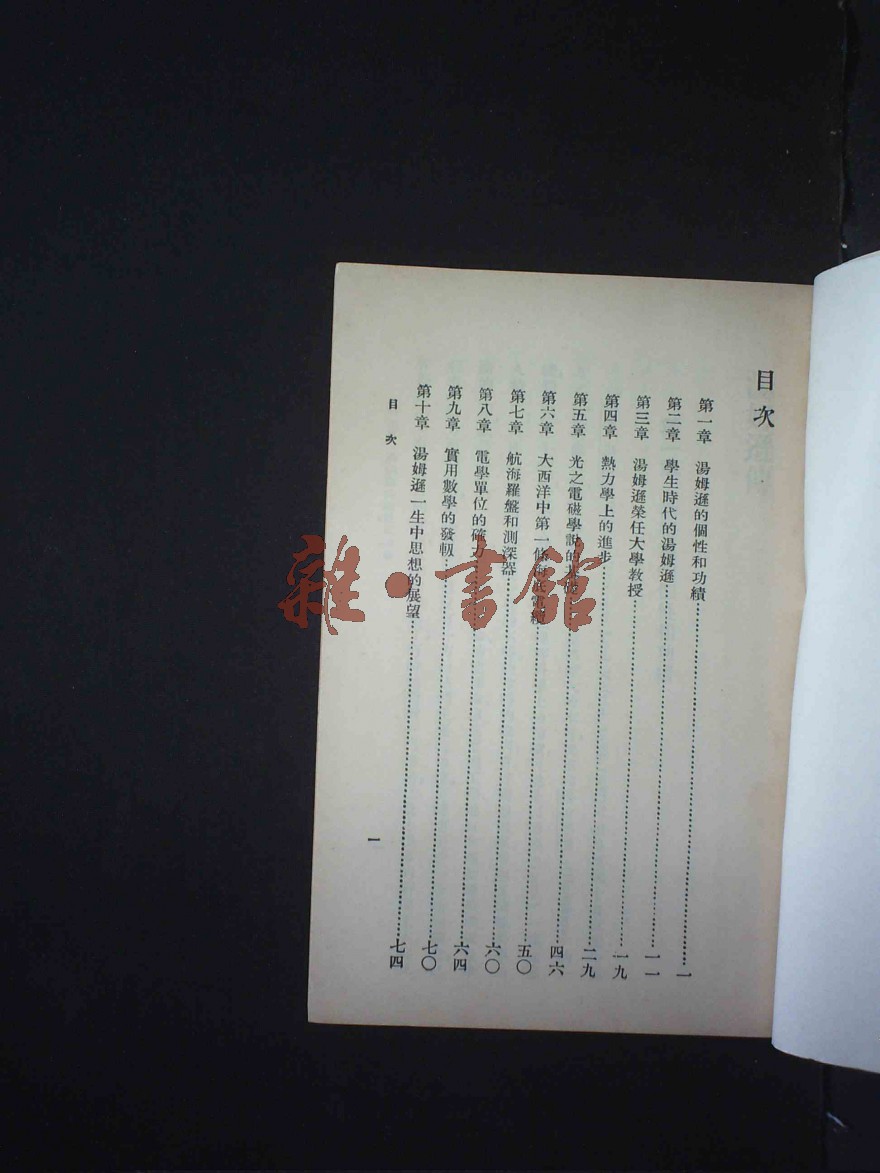 目次
第一章 湯姆遜的個性和功績……一
第二章 學生時代的湯姆遜……一一
第三章 湯姆遜榮任大學教授……一九
第四章 熱力學上的進步……二九
第五章 光之電磁學說的基礎……四六
第六章 大西洋中第一條海底電纜……五〇
第七章 航海羅盤和測深器……六〇
第八章 電學單位的確立……六四
第九章 實用數學的發軔……七〇
第十章 湯姆遜一生中思想的展望……七四
目 次
一
雜·書館